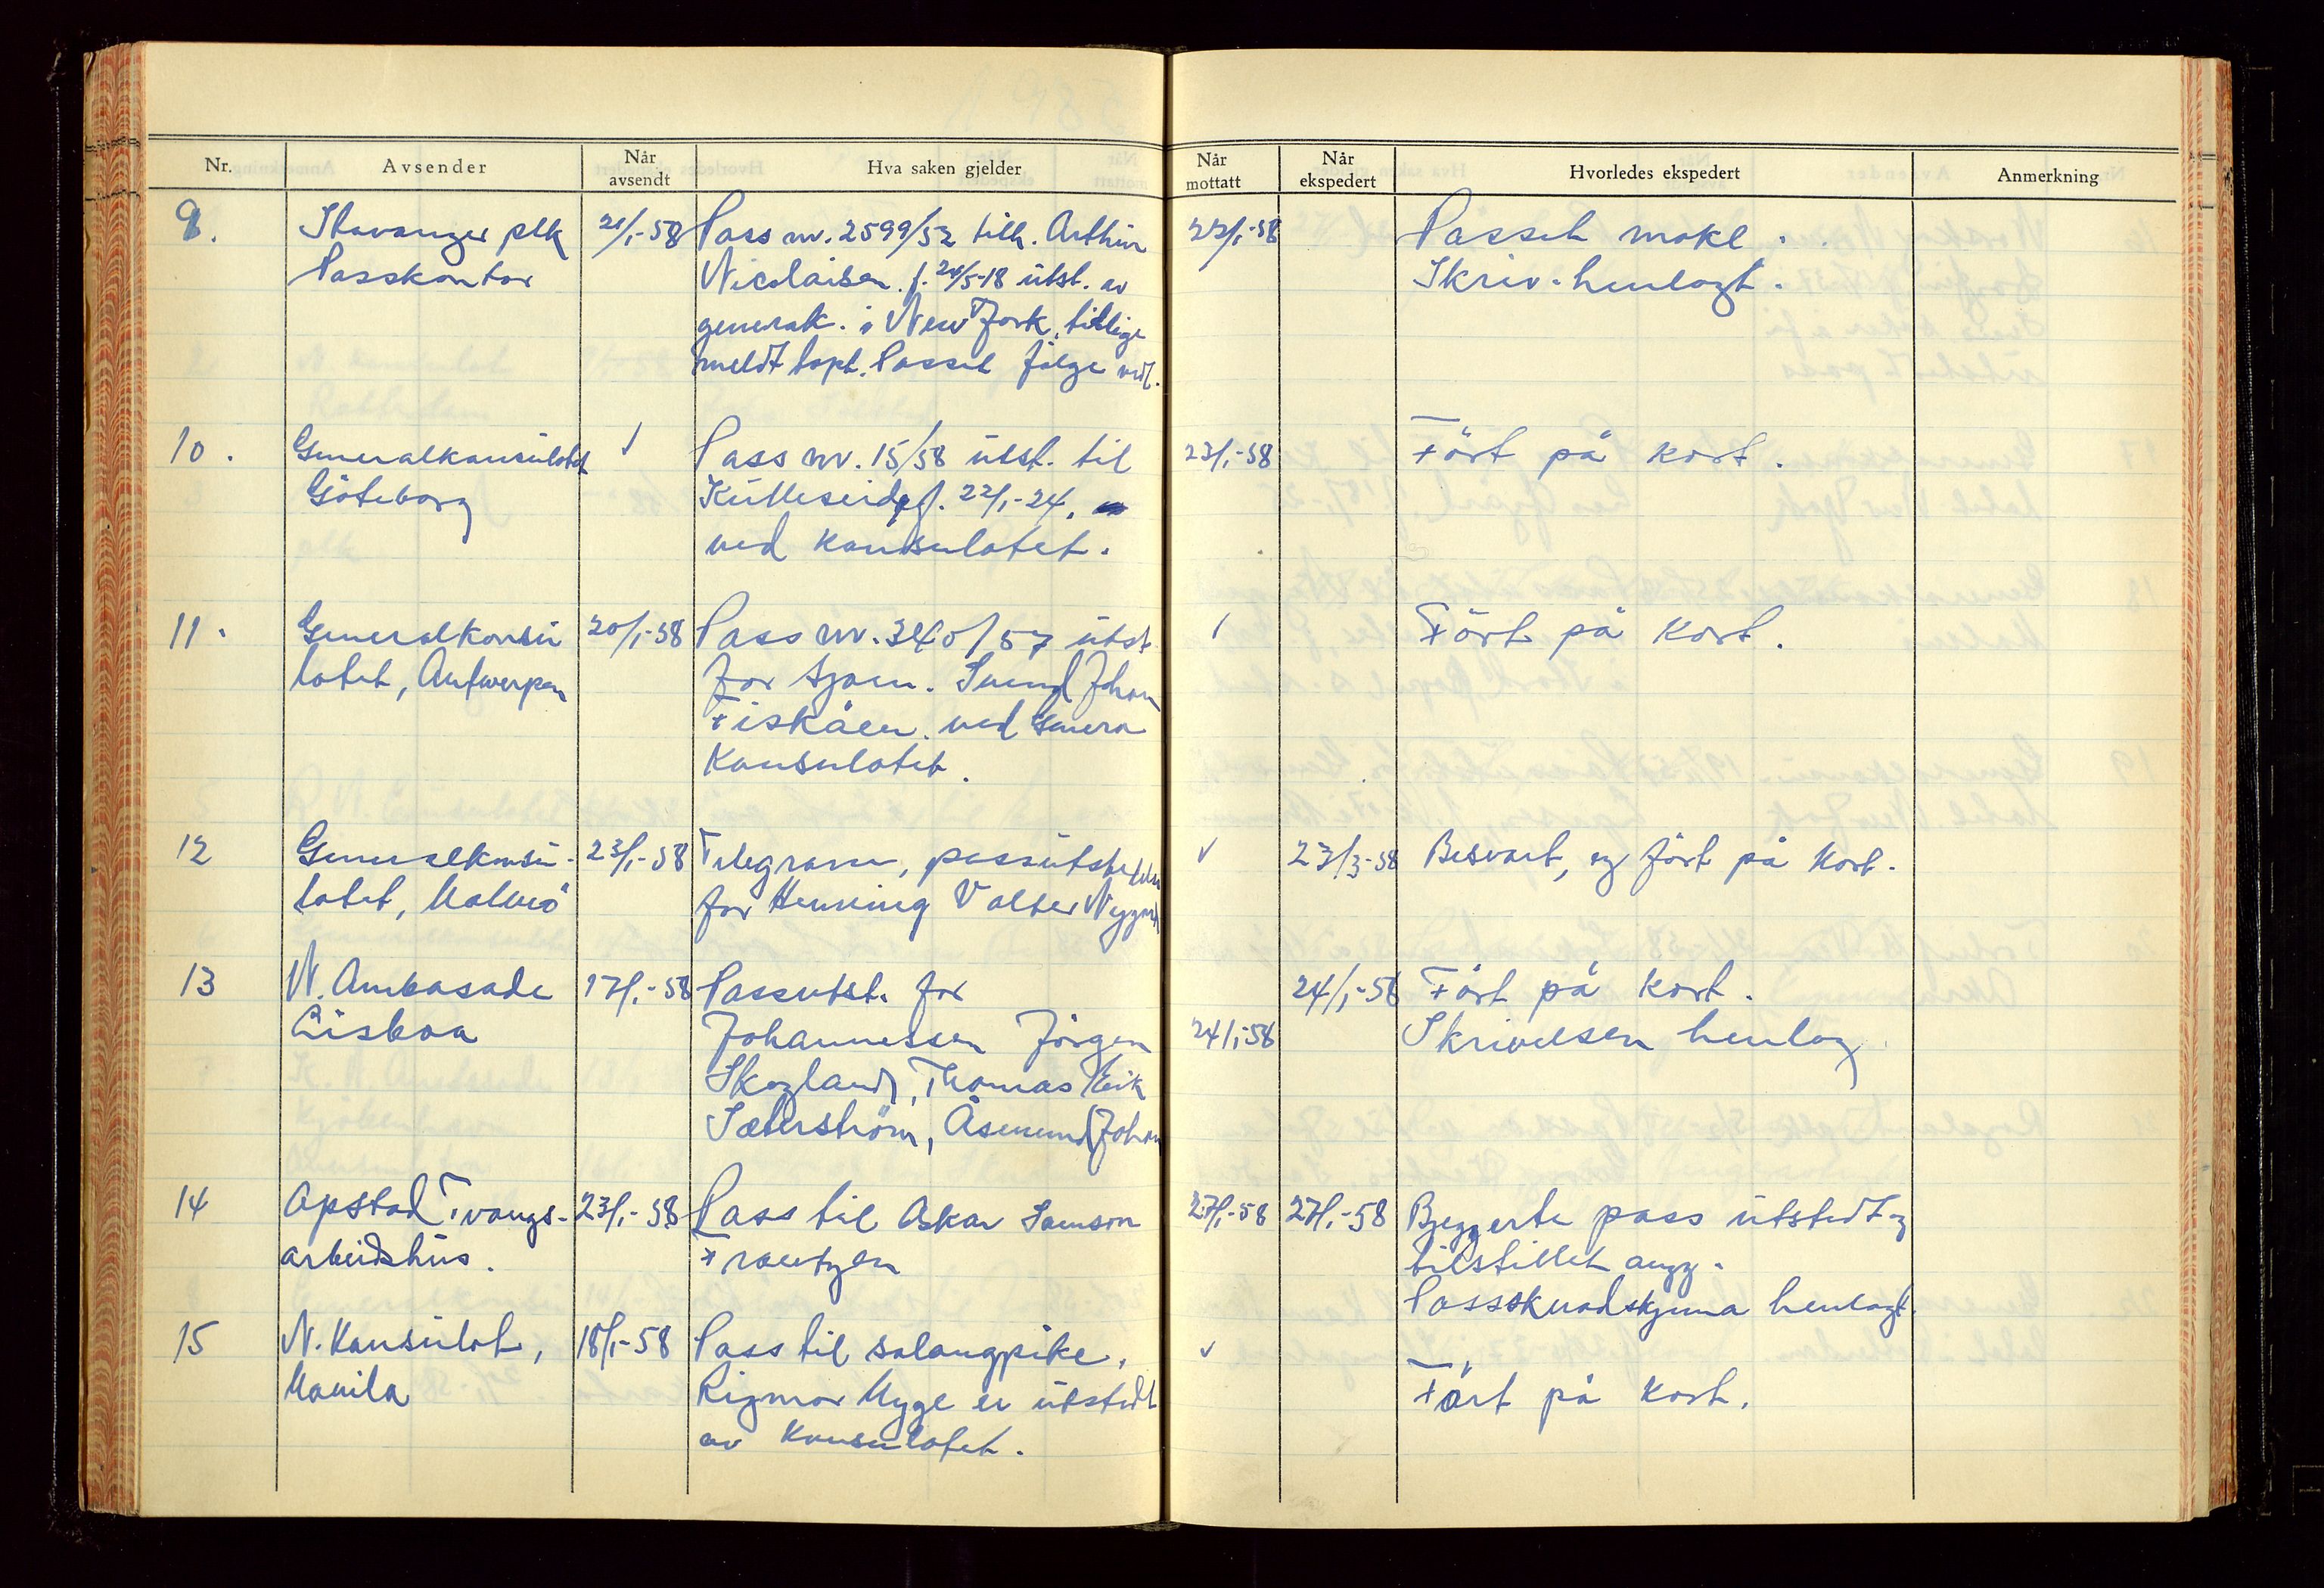 Nr. Avsender Når avsendt Hva saken gjelder Når mottatt Når ekspedert Hvorledes ekspedert Anmerkning
9. Stavanger plk 21/1-58 Pass nr. 2599/52 tilh. Arthur 22/1-58 Passet makl.
Passkontor Nicolaisen f. 24/5-18 utst. av Skriv. henlagt.
generalk. i New York, tidlige
meldt tapt. Passet følge vedl.
10. Generalkonsulatet √ Pass nr. 15/58 utst. til 23/1-58 Ført på kort.
Göteborg Kulleseid f. 22/1-24,
ved konsulatet.
11. Generalkonsu 20/1-58 Pass nr. 340/57 utst √ Ført på kort.
latet, Antwerpen for sjøm. Svend Johan
Fiskåen. ved Genera
Konsulatet.
12 Generalkonsu- 23/1-58 Telegram, passutstedelse √ 23/3-58 Besvart, og ført på kort.
latet, Malmö for Henning Valter Nygård
13 N. Ambasade 17/1-58 Passutst. for 24/1-58 Ført på kort.
Lisboa Johannessen Jörgen 24/1-58 Skrivelsen henlag
Skogland, Thomas Eik
Sæterström, Åsmund Johan
14 Opstad Tvangs- 23/1-58 Pass til Oskar Samson 27/1-58 27/1-58 Begjærte pass utstedt og
arbeidshus. Frantzen tilstillet angj.
Passsknadskjema henlagt
15 N. Konsulat, 18/1-58 Pass til salongpike, √
Manila Rigmor Myge er utstedt Ført på kort.
av Konsulatet.